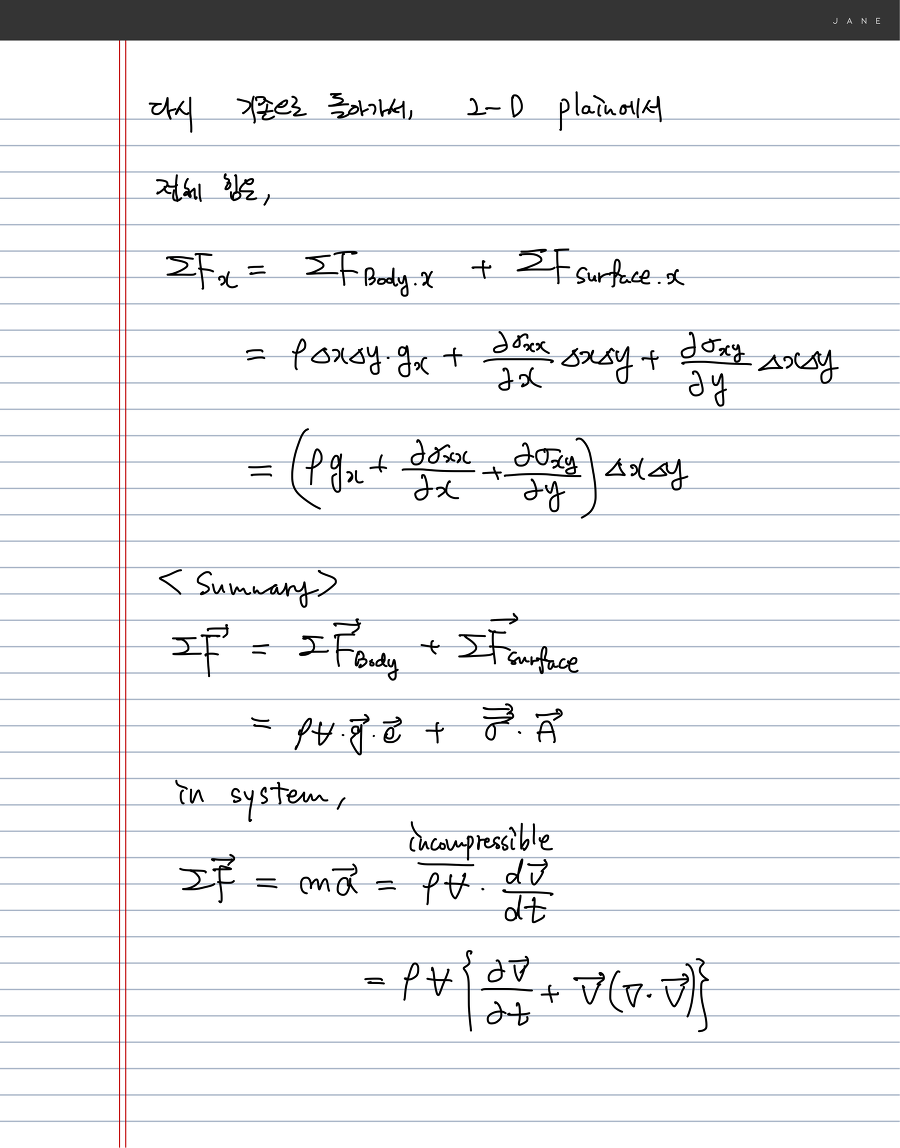 JANE
다시 기존으로 돌아가서, 2-D plain에서
전체 힘은,
ΣFx = ΣFBody.x + ΣFSurface.x
= ρΔxΔy·gx + ∂σxx/∂x ΔxΔy + ∂σxy/∂y ΔxΔy
= (ρgx + ∂σxx/∂x + ∂σxy/∂y) ΔxΔy
<Summary>
ΣF⃗ = ΣF⃗Body + ΣF⃗surface
= ρV̶·g⃗·e⃗ + σ⃗⃗·A⃗
in system,
incompressible
ΣF⃗ = ma⃗ = ρV̶·dv⃗/dt
= ρV̶{∂v⃗/∂t + v⃗(∇·v⃗)}